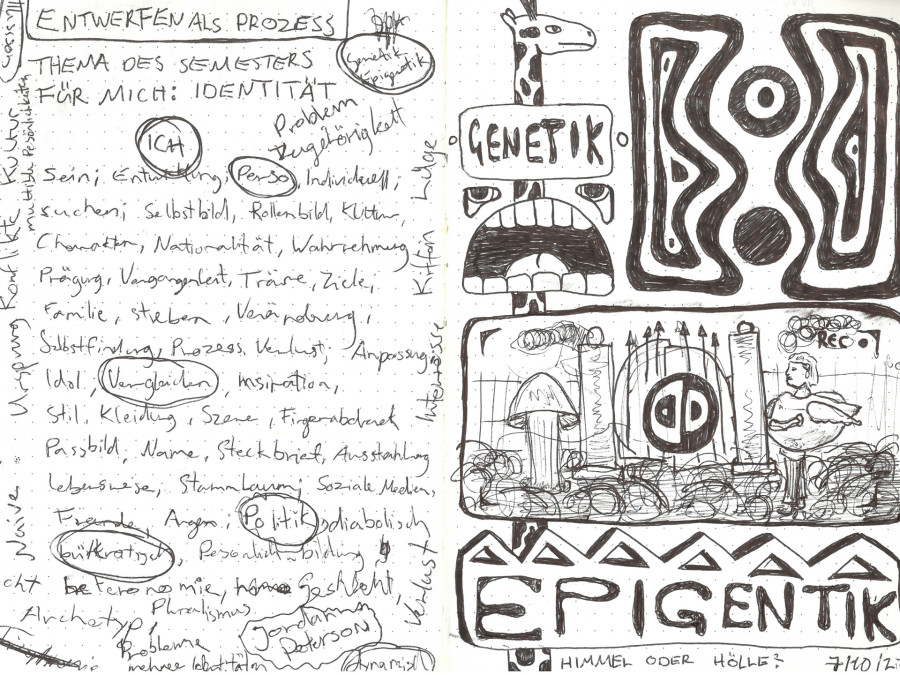 ENTWERFEN ALS PROZESS
THEMA DES SEMESTERS
FÜR MICH: IDENTITÄT
Genetik
Epigentik
Problem
Zugehörigkeit
ICH
Sein; Entwicklung; Perso, Individuell;
suchen; Selbstbild, Rollenbild, Kultur,
Charakter, Nationalität, Wahrnehmung
Prägung, Vergangenheit, Träume, Ziele;
Familie, sterben, Veränderung,
Selbstfindung, Prozess, Verlust, Anpassung
Idol, Vergleichen, Inspiration,
Stil, Kleidung, Szene, Fingerabdruck
Passbild, Name, Steckbrief, Ausstrahlung
Lebensweise, Stammbaum, Soziale Medien,
Freunde, Augen, Politik, diabolisch
bürokratisch, Persönlichbildung
heteronomie, Geschlecht,
Archetyp, Pluralismus
Probleme
mehrer Identitäten
Jordanns
Peterson
dynamisch
Naive Ursprung Konflikte Kultur
multible Persönlichkeiten
Verlust Interesse Lüge
GENETIK
REC
EPIGENTIK
HIMMEL ODER HÖLLE?
7/10/2